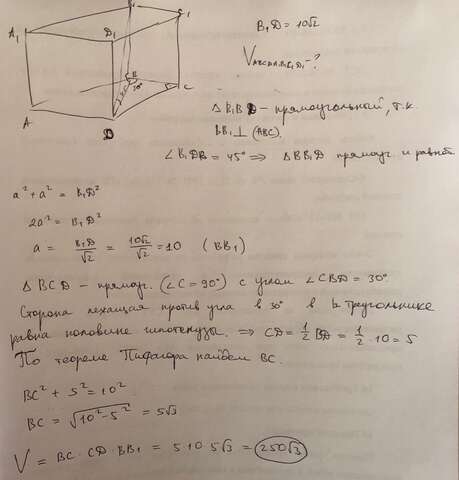 B₁ C₁
A₁ D₁
B₁D = 10√2
V ABCDA₁B₁C₁D₁ - ?
B
45° 30°
A C
D
△ B₁BD – прямоугольный, т.к.
BB₁ ⊥ (ABC).
∠B₁DB = 45° ⇒ △BB₁D прямоуг. и равноб.
a² + a² = B₁D²
2a² = B₁D²
a = B₁D/√2 = 10√2/√2 = 10 (BB₁)
△ BCD – прямоуг. (∠C = 90°) с углом ∠CBD = 30°.
Сторона лежащая против угла в 30° в треугольнике
равна половине гипотенузы. ⇒ CD = 1/2 BD = 1/2 · 10 = 5
По теореме Пифагора найдем BC.
BC² + 5² = 10²
BC = √(10² - 5²) = 5√3
V = BC · CD · BB₁ = 5 · 10 · 5√3 = 250√3